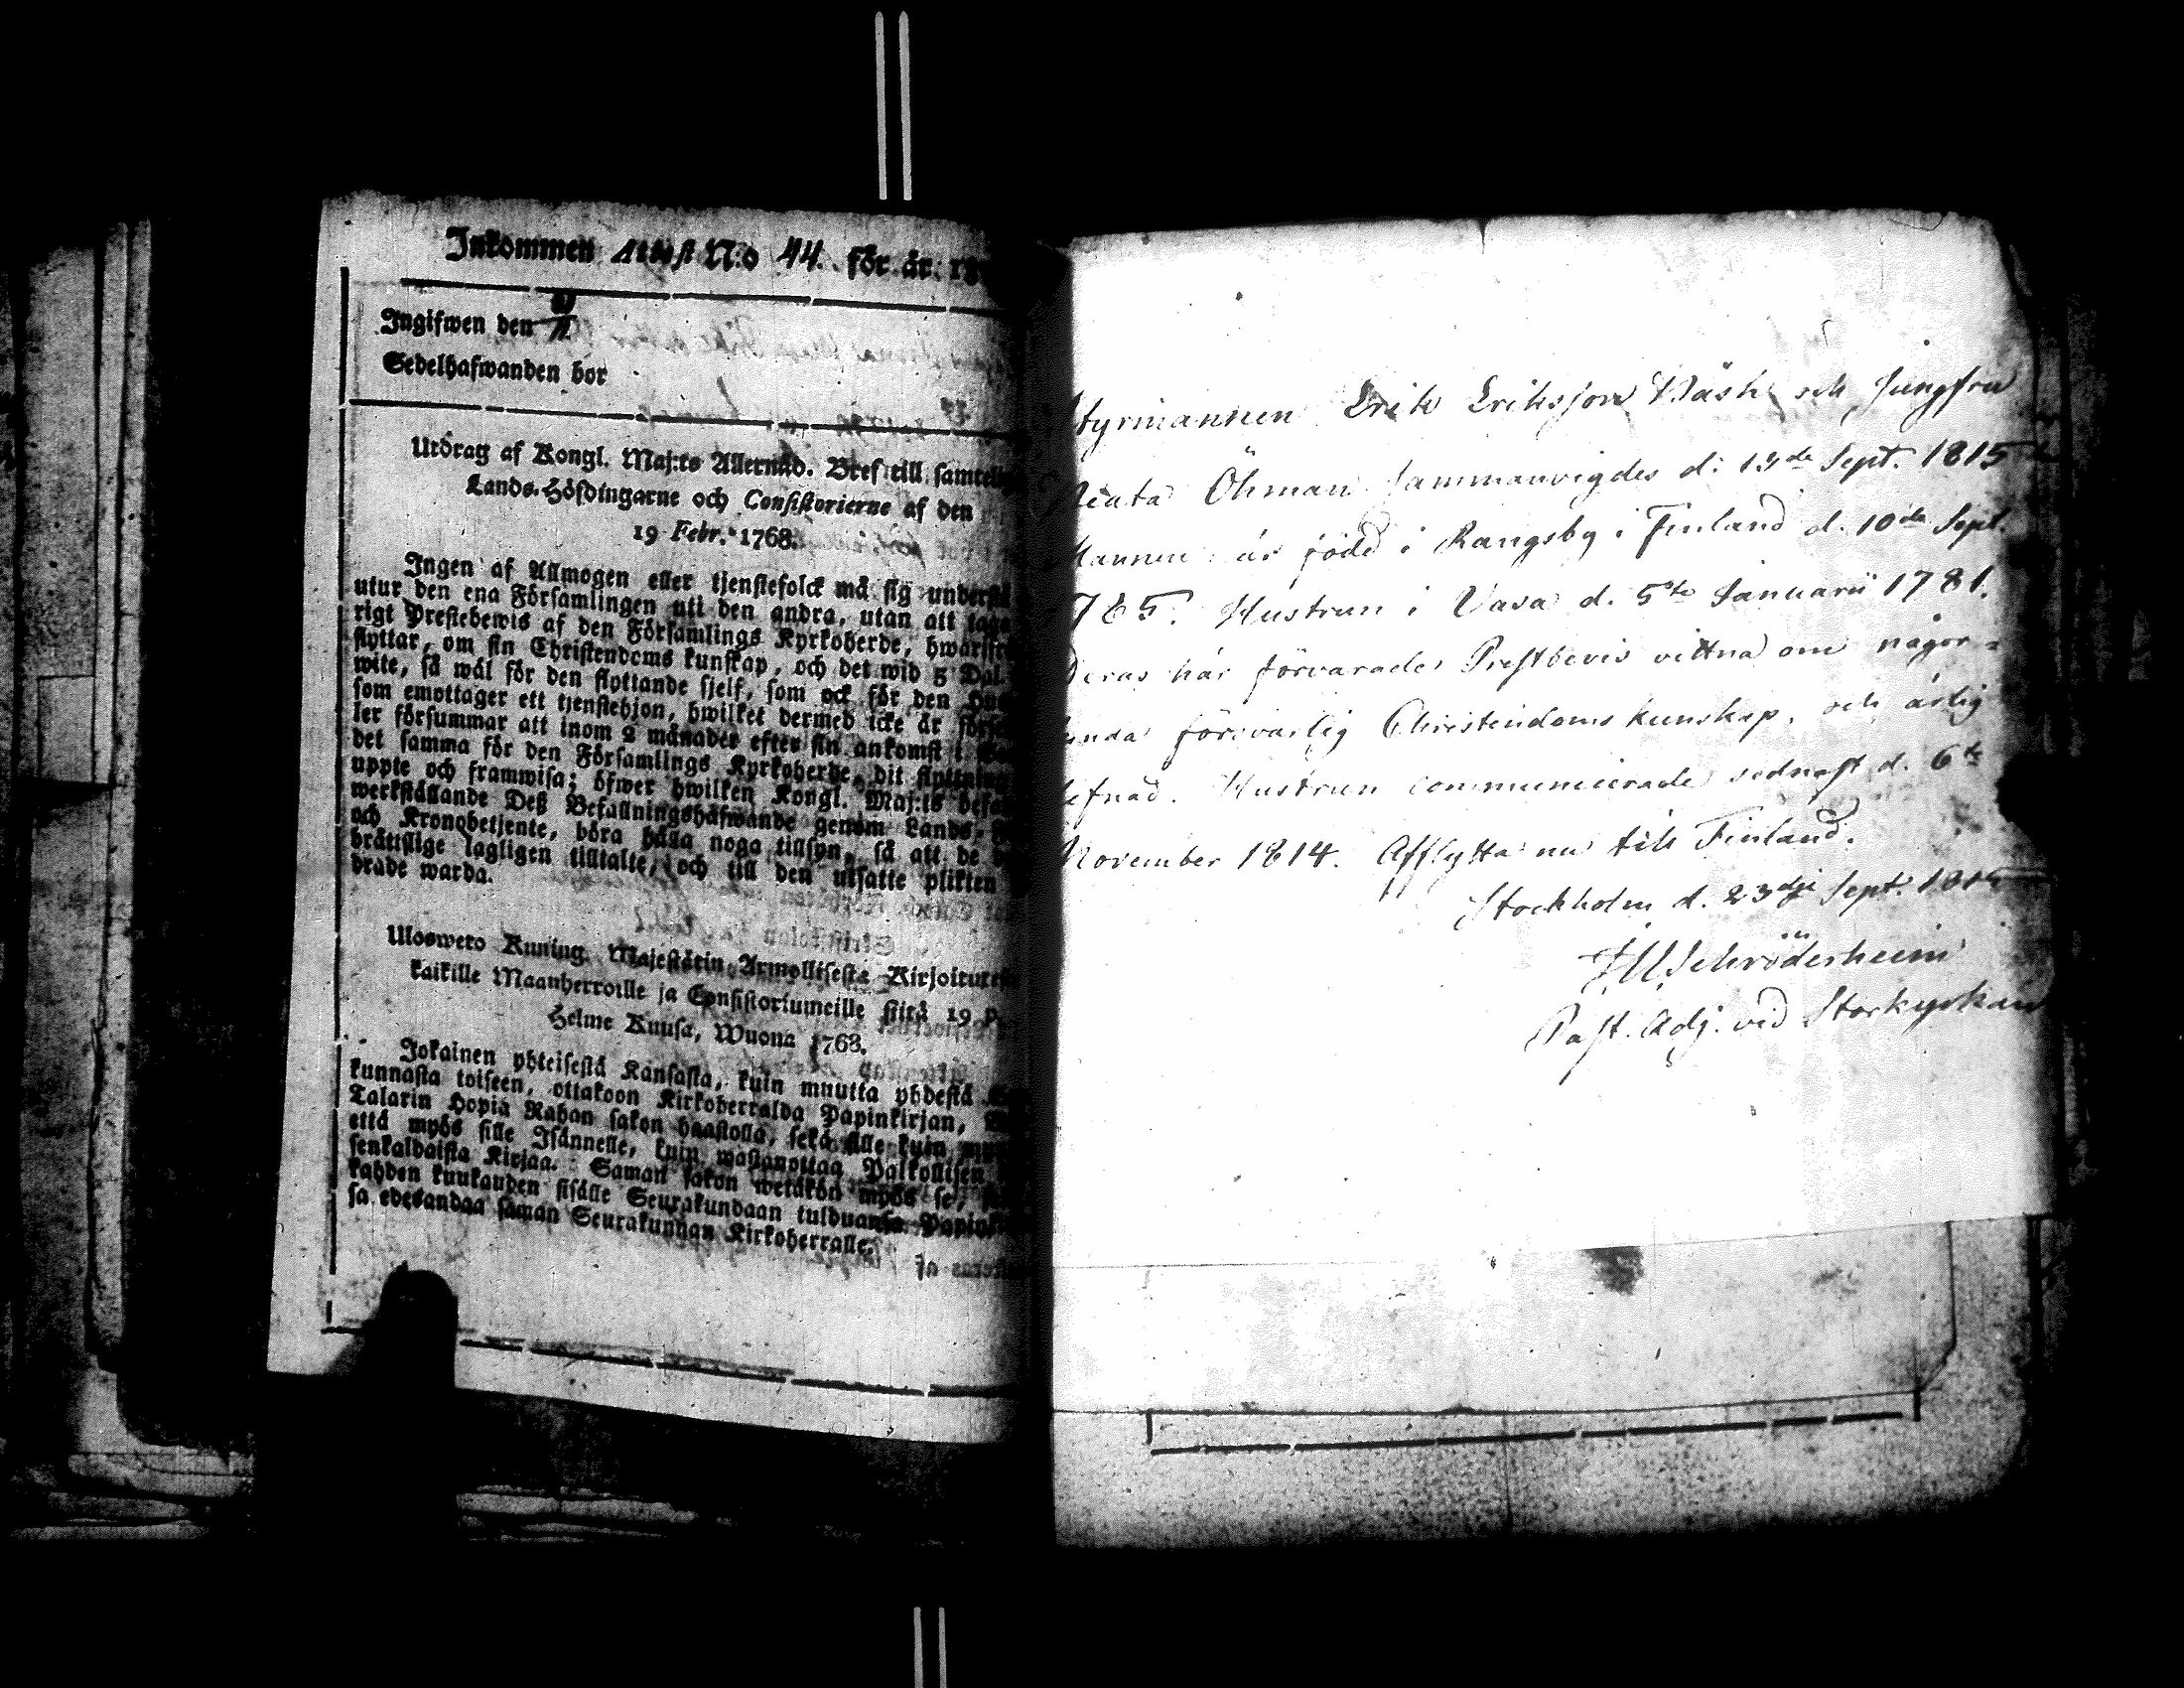 Inkommen Attest N:o 44. för år: 18
Ingifwen den
Sedelhafwanden bor
Utdrag af Kongl. Maj:ts Allernåd. Bref till samtelige
Lands-Höfdingarne och Consistorierne af den
19 Febr. 1768.
Ingen af Allmogen eller tjenstefolck må sig understå
utur den ena Församlingen util den andra, utan att taga
rigt Prestebewis af den Församlings Kyrkoherde, hwarifrån
flyttar, om sin Christendoms kunskap, och det wid 5 Dal.
wite, så wäl för den flyttande sjelf, som ock för den
som emottager ett tjenstehjon, hwilket dermed icke är
ler försummar att inom 2 månader efter sin ankomst i
det samma för den Församlings Kyrkoherde, dit flyttning
uppte och framwisa; öfwer hwilken Kongl. Maj:ts
werkställande Deß Befallningshafwande genom Lands-
och Kronobetjente, böra hålla noga tillsyn, så att de
brättslige lagligen tilltalte, och till den utsatte plikten
drade warda.
Uloswero Kuning. Majestätin Armollisesta Kirjoituxesta
kaikille Maanherroille ja Consistoriumeille siitä 19 p.
Helme Kuusa, Wuona 1768.
Jokainen yhteisestä Kansasta, kuin muutta yhdestä
kunnasta toiseen, ottakoon Kirkoherralda Papinkirjan,
Talarin Hopia Rahan sakon haastolla, sekä sille kuin
että myös sille Isännelle, kuin wastanottaa Palkollisen
senkaldaista Kirjaa. Saman sakon wetäkön myös se,
kahden kuukauden sisälle Seurakundaan tulduansa
sa edesandaa saman Seurakunnan Kirkoherralle.
Styrmannen Erik Eriksson Näsk och Jungfru
Beata Öhman sammanvigdes d: 13de Sept. 1815
Mannen är född i Rangsby i Finland d. 10de Sept.
785. Hustrun i Vasa d. 5te Januarii 1781.
Deras här förvarade Prestbevis vittna om någor-
lunda försvarlig Christendoms kunskap, och ärlig
lefnad. Hustrun communicerade sednast d. 6te
November 1814. Afflytta nu till Finland.
Stockholm d. 23dje Sept. 1815
Schröderheim
Past. Adj. vid Storkyrkan